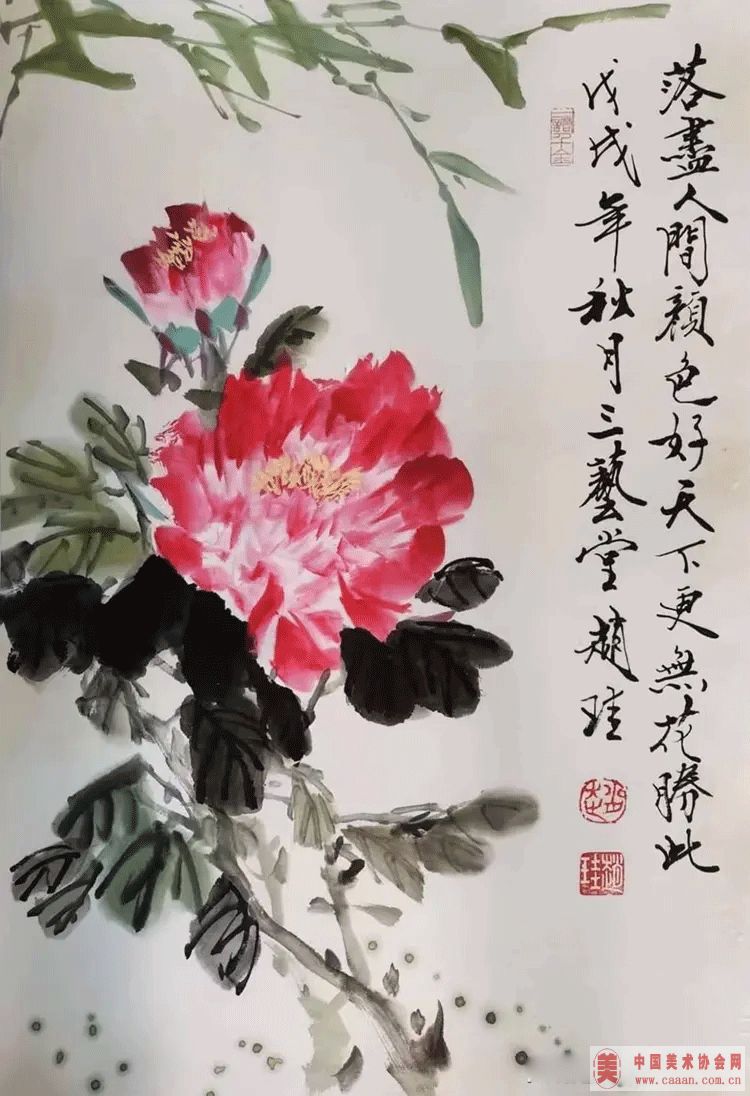 落盡人間顔色好天下更無花勝此
戊戌年秋月三藝堂趙珪
趙珪
美 中国美术协会网
www.caaan.com.cn